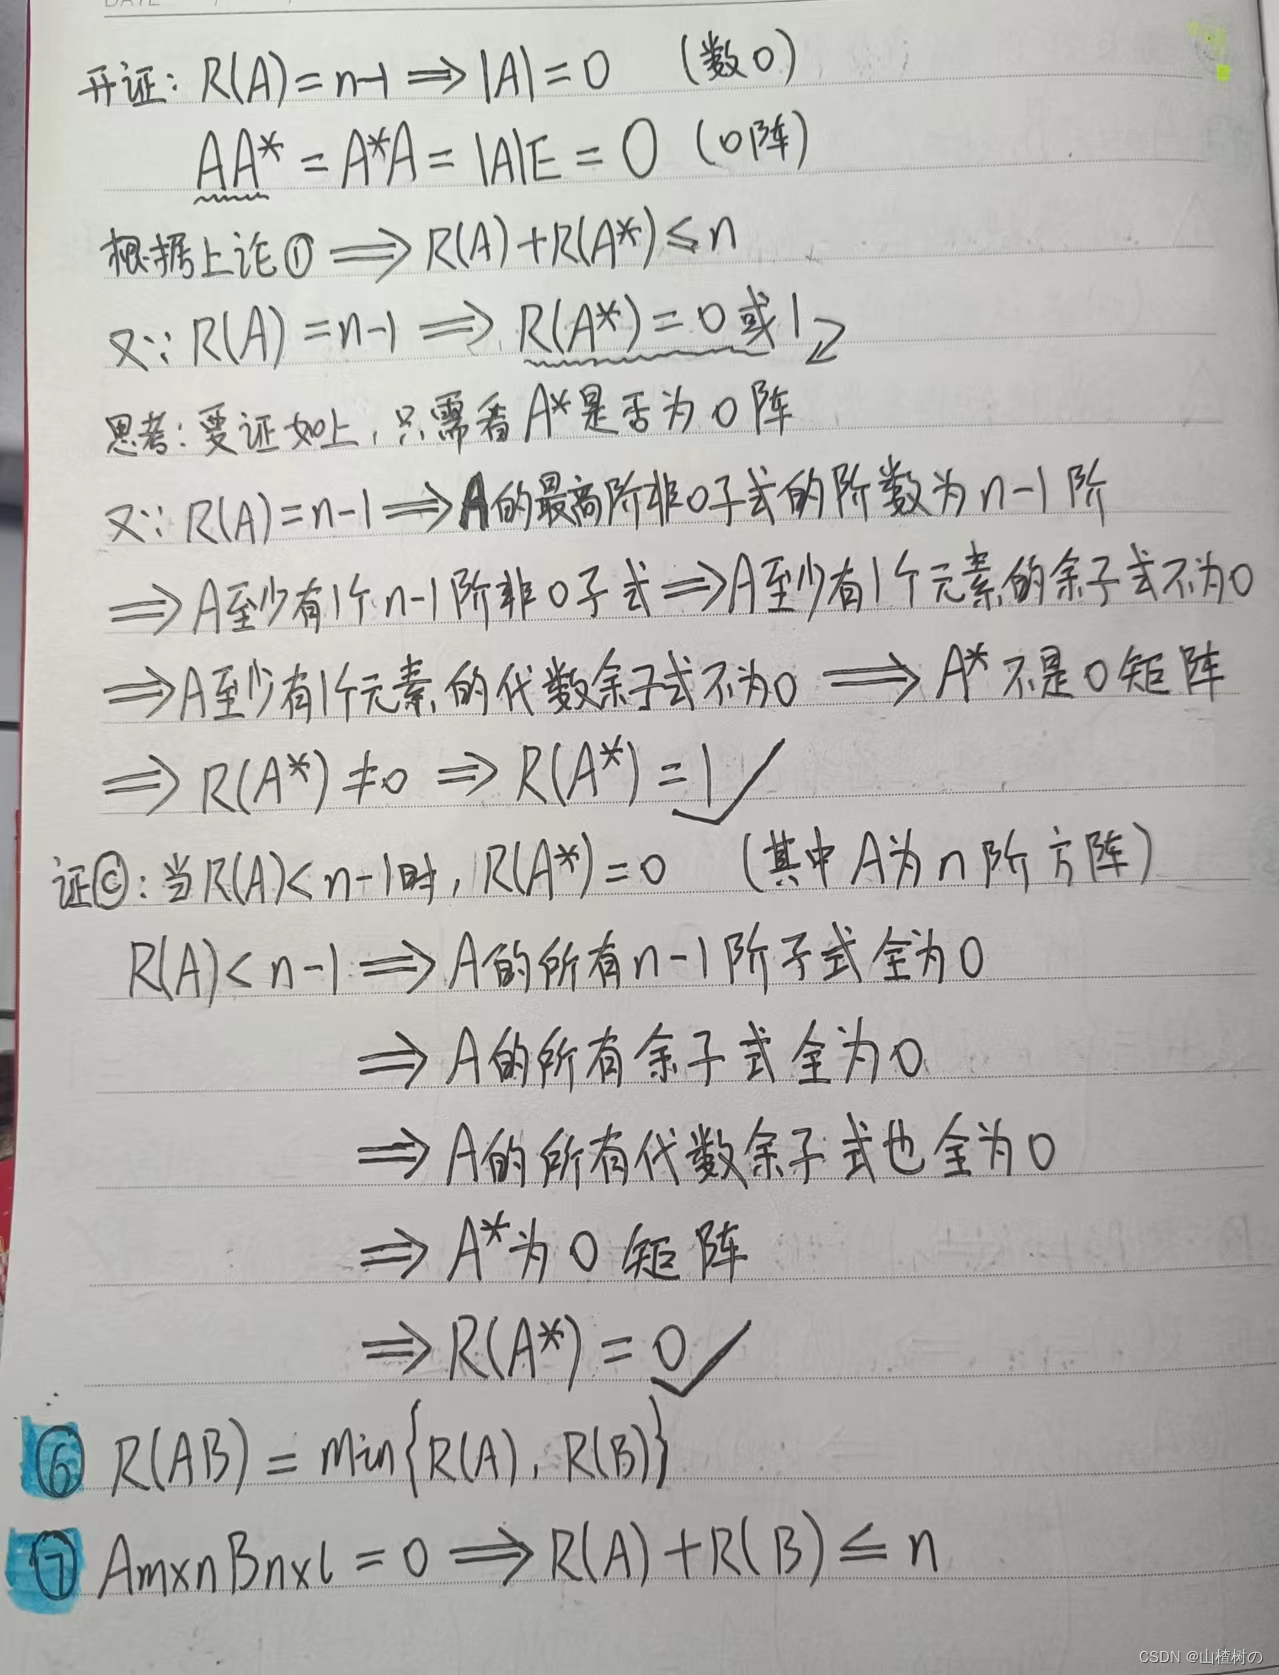 开证: R(A)=n-1⟹|A|=0 (数0)
AA* = A*A = |A|E = 0 (0阵)
根据上论① ⟹ R(A)+R(A*)≤n
又∵ R(A)=n-1 ⟹ R(A*)=0或1
思考: 要证如上, 只需看A*是否为0阵
又∵ R(A)=n-1⟹A的最高阶非0子式的阶数为n-1阶
⟹A至少有1个n-1阶非0子式⟹A至少有1个元素的余子式不为0
⟹A至少有1个元素的代数余子式不为0 ⟹ A*不是0矩阵
⟹ R(A*)≠0 ⟹ R(A*)=1✓
证ⓒ: 当R(A)<n-1时, R(A*)=0 (其中A为n阶方阵)
R(A)<n-1 ⟹ A的所有n-1阶子式全为0
⟹ A的所有余子式全为0
⟹ A的所有代数余子式也全为0
⟹ A*为0矩阵
⟹ R(A*)=0✓
⑥ R(AB)=min{R(A), R(B)}
⑦ Am×nBn×l=0⟹R(A)+R(B)≤n
CSDN @山楂树の